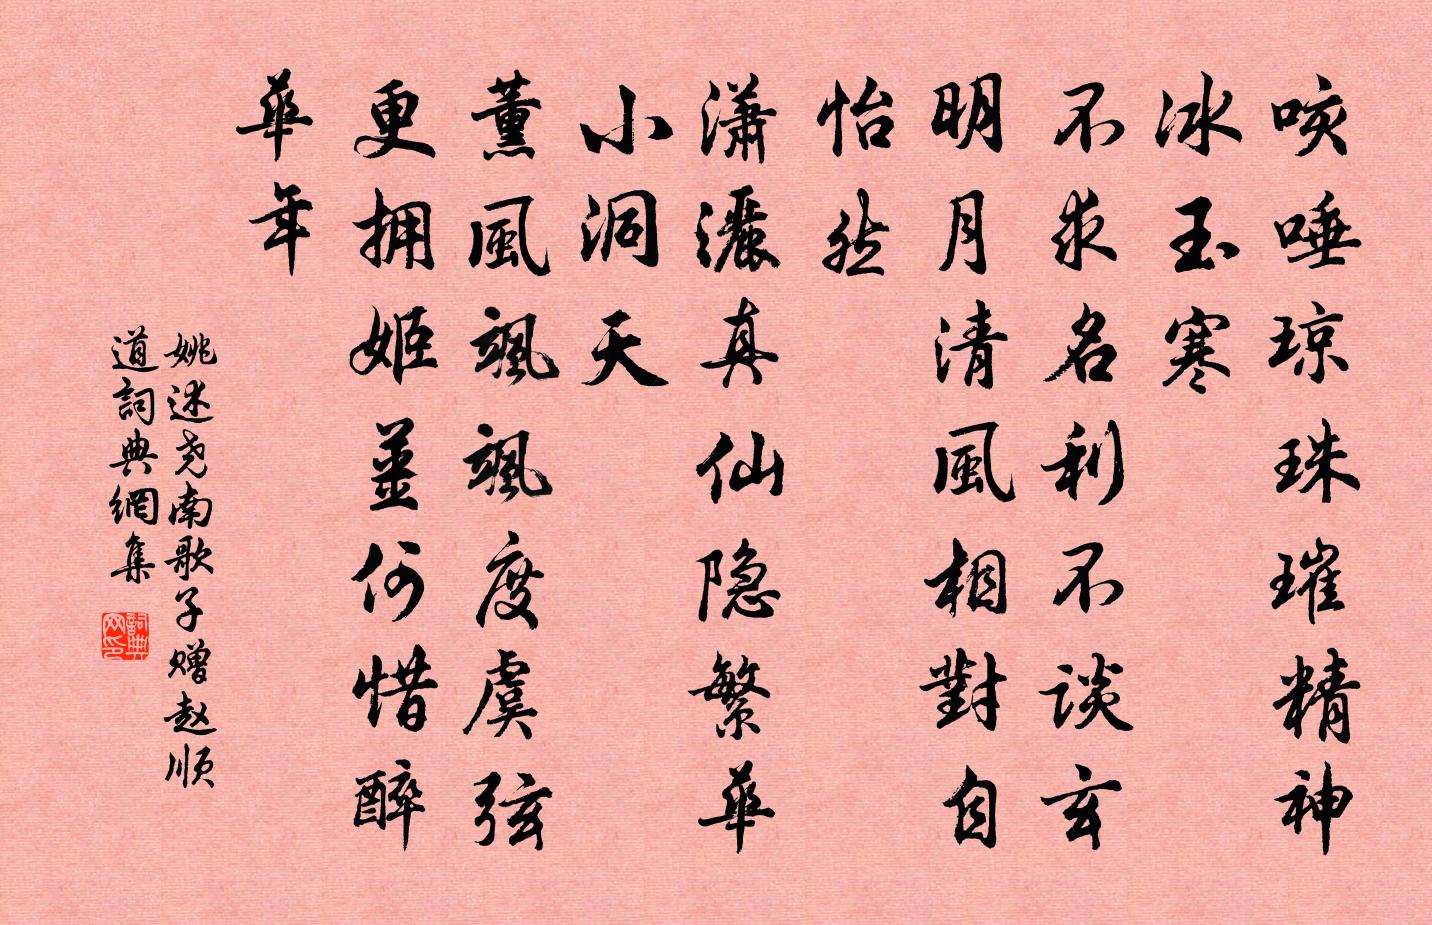 咳唾琼珠璀精神
冰玉寒
不求名利不谈玄
明月清風相對自
怡然
瀟灑真仙隐繁華
小洞天
薰風颯颯度虞弦
更拥姬薑何惜醉
華年
姚述尧南歌子赠赵顺
道詞典網集
詞典网印